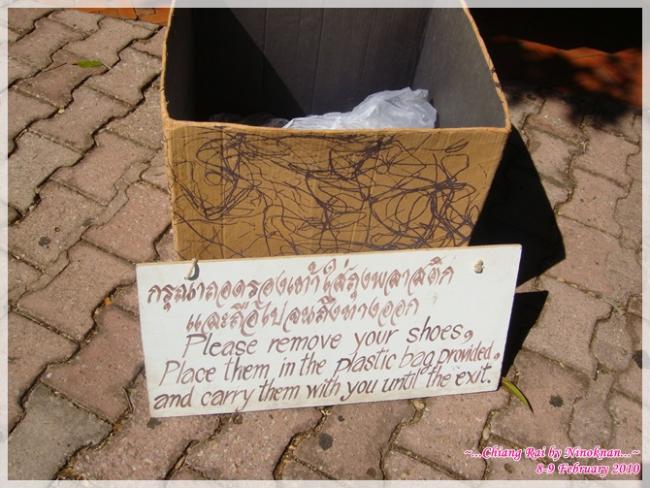 กรุณาถอดรองเท้าใส่ถุงพลาสติก
และถือไปจนถึงทางออก
Please remove your shoes,
Place them in the plastic bag provided,
and carry them with you until the exit.
~...Chiang Rai by Ninoknan...~
8-9 February 2010